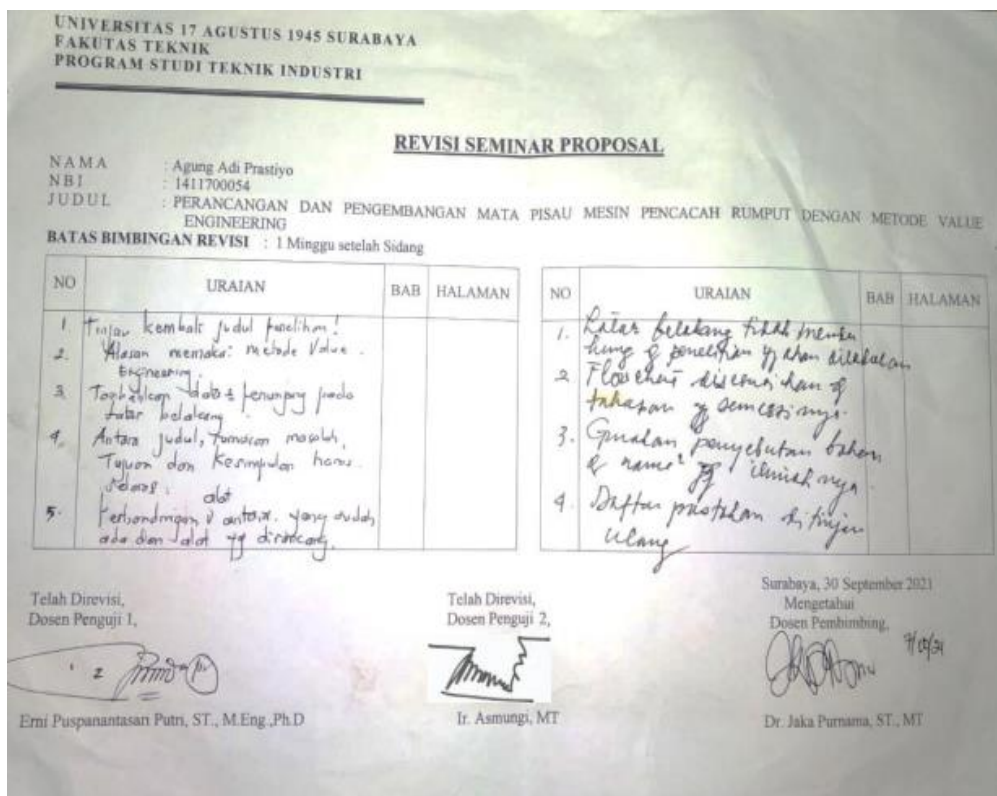 UNIVERSITAS 17 AGUSTUS 1945 SURABAYA
FAKUTAS TEKNIK
PROGRAM STUDI TEKNIK INDUSTRI
REVISI SEMINAR PROPOSAL
NAMA : Agung Adi Prastiyo
NBI : 1411700054
JUDUL : PERANCANGAN DAN PENGEMBANGAN MATA PISAU MESIN PENCACAH RUMPUT DENGAN METODE VALUE
ENGINEERING
BATAS BIMBINGAN REVISI : 1 Minggu setelah Sidang
NO URAIAN BAB HALAMAN
1. Tinjau kembali judul penelitian!
2. Alasan memakai metode Value
Engineering.
3. Tambahkan data2 penunjang pada
latar belakang
4. Antara judul, rumusan masalah,
Tujuan dan Kesimpulan harus
selaras.
5. Perbandingan alat antara yang sudah
ada dan alat yg dirancang.
NO URAIAN BAB HALAMAN
1. Latar belakang tidak
penelitian yg akan dilakukan
2 Flowchart disesuaikan dg
tahapan yg semestinya.
3. Gunakan penyebutan bahan
dg nama2 yg ilmiahnya.
4. Daftar pustaka ditinjau
ulang
Telah Direvisi,
Dosen Penguji 1,
Erni Puspanantasan Putri, ST., M.Eng.,Ph.D
Telah Direvisi,
Dosen Penguji 2,
Ir. Asmungi, MT
Surabaya, 30 September 2021
Mengetahui
Dosen Pembimbing,
Dr. Jaka Purnama, ST., MT